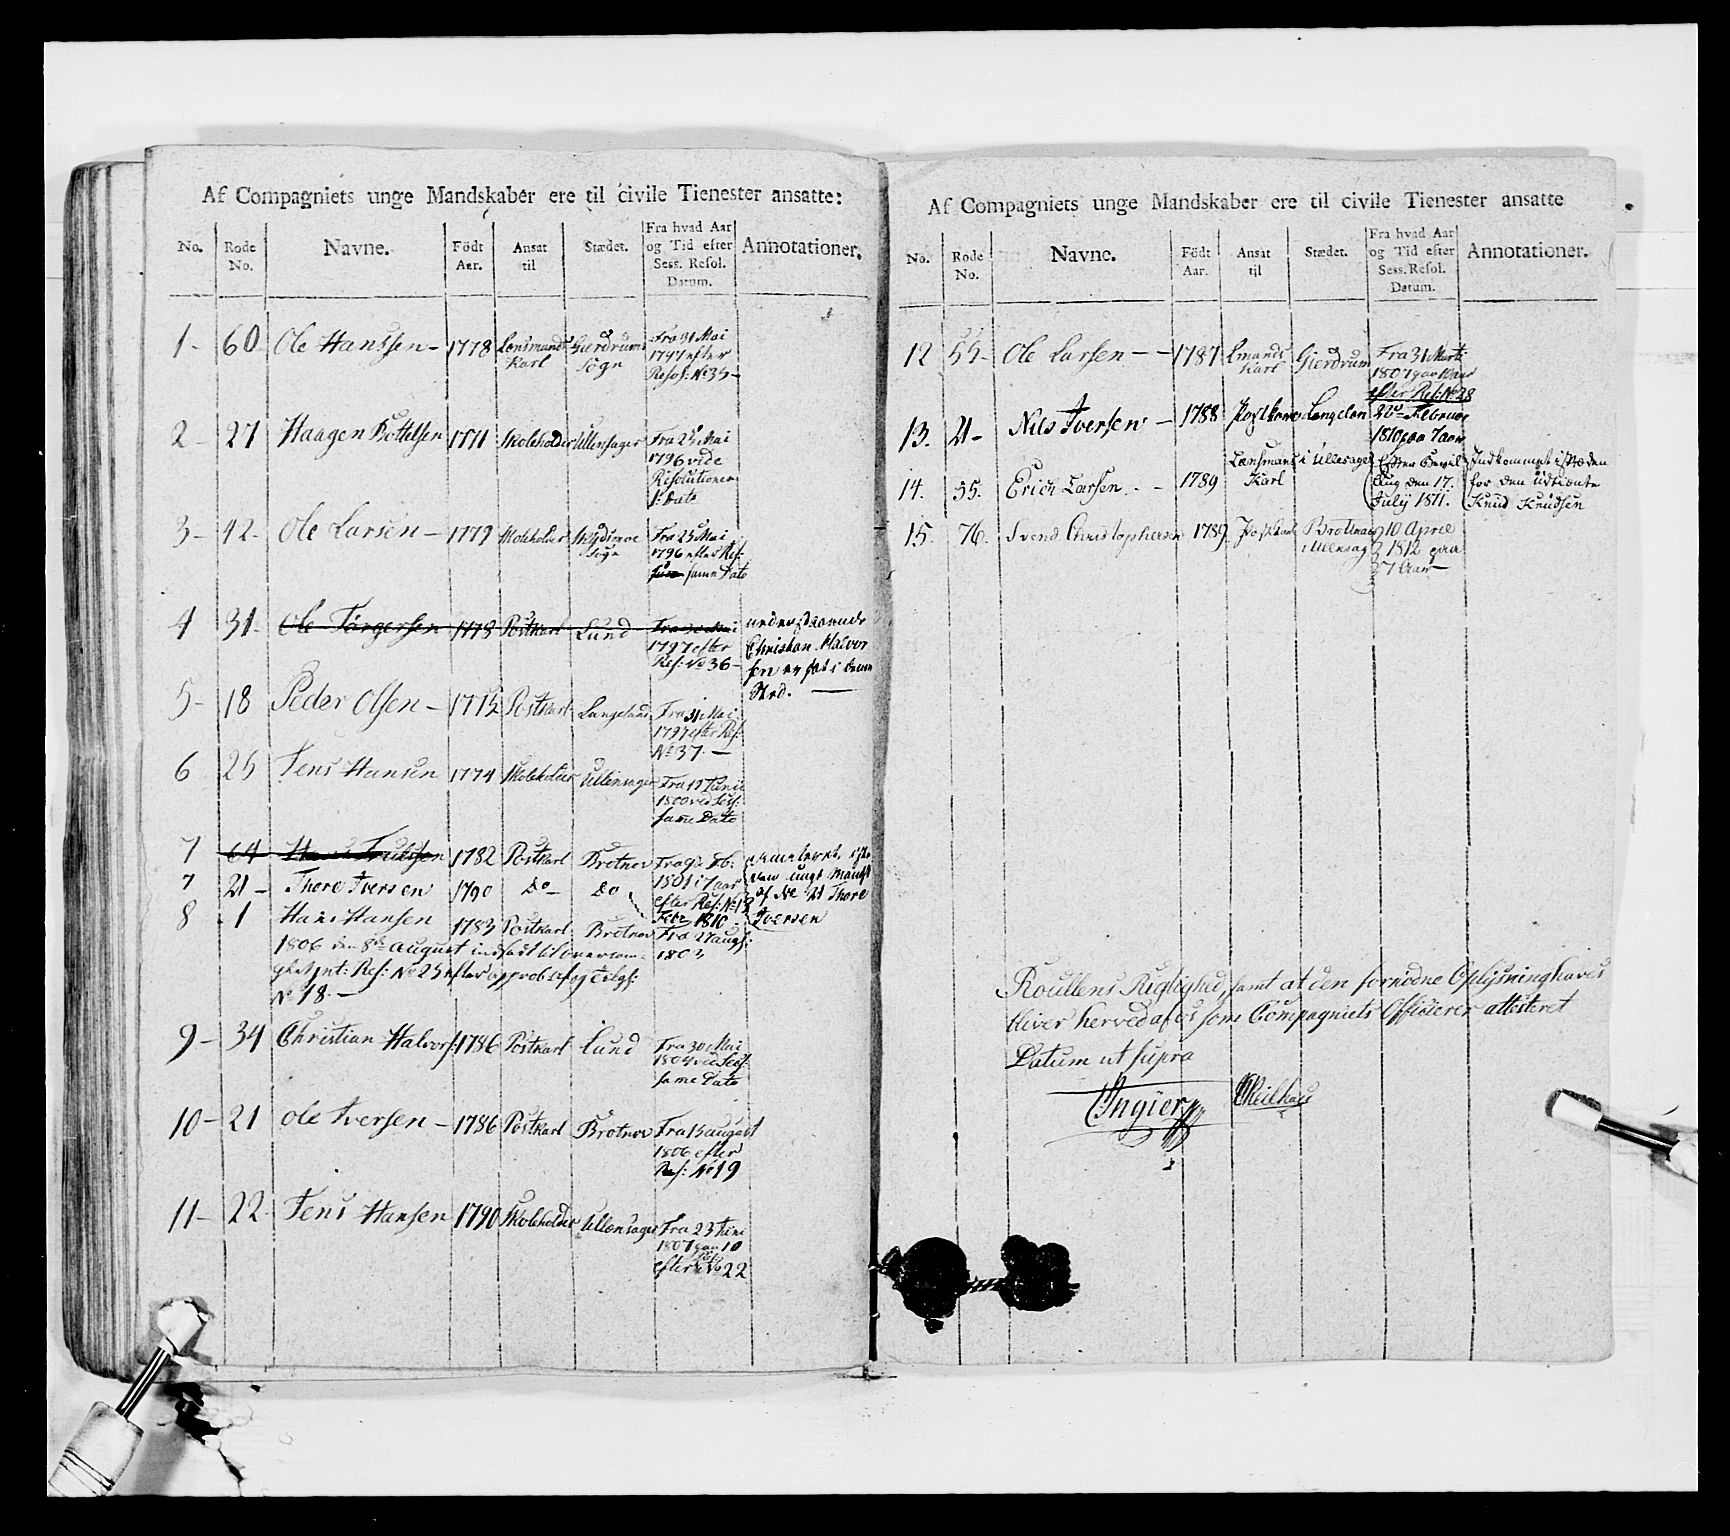 Af Compagniets unge Mandskaber ere til civile Tienester ansatte:
No. Rode No. Navne. Födt Aar. Ansat til Stædet. Fra hvad Aar og Tid efter Sess. Resol. Datum. Annotationer.
1 - 60 Ole Hanssen - 1778 Lensmands Karl Gierdrums Sogn Fra 31 Mai
1797 efter
Resol: No 35 -
2 - 27 Haagen Bottelsen 1771 Skoleholder Ullensager Fra 25 Mai
1796 vide
Resolutionen
s: Dato
3 - 42 - Ole Larsen - 1779 Skoleholder Sogn Fra 25 Mai
1796 efter Res:
same Dato
4 31 - Ole Torgersen 1778 Postkarl Lund Fra 30 Mai
1797 efter
Res: No 36 -
understaaende
Christian Halvor
sen er sat i denne
Sted. -
5 - 18 Peder Olsen - 1775 Postkarl Langeland Fra 31 Mai
1797 efter Res:
No 37. -
6 25 Jens Hansen 1774 Skoleholder Ullensager Fra 17 Junii
1800 ved Sess:
same Dato
7 64 Trulssen 1782 Postkarl Brotnov
1801 i 7 aar
efter Res: No 13
7 21 - Thore Iversen 1790 Do - Do
Febr 1810
ungt Mandsk
af No 21 Thore
Iversen
8 - 1 Hans Hansen 1783 Postkarl Brotnov Fra 27 augs:
1803
1806 den 8de august indsadt til
Res: No 25 efter approb. af og
No 18. -
9 - 34 Christian Halvors: 1786 Postkarl Lund Fra 30 Mai
1804 ved Sess:
same Dato
10 - 21 Ole Iversen - 1786 Postkarl Brotnov Fra 15 august
1806 efter
Res: No 19
11 - 22 - Jens Hansen 1790 Skoleholder Ullensager Fra 23 Juni
1807 paa 10
efter Res: No 22
Af Compagniets unge Mandskaber ere til civile Tienester ansatte
No. Rode No. Navne. Födt Aar. Ansat til Stædet. Fra hvad Aar og Tid efter Sess. Resol. Datum. Annotationer.
12 55 - Ole Larsen - - 1787 Lmands Karl Gierdrum Fra 31 Marti
1807 paa
efter Res: No 28
13. 21 - Nils Iversen - 1788 Postkarl Langelan Februar
1810 paa 7 aar
14. 55. Erich Larsen. - - 1789 Lænsmans Karl i Ullesager Efter Bevil
ling den 17.
July 1811.
Indkommet i Stæden
for den udtiente
Knud Knudsen
15. 76. Svend Christophersen 1789. Postkarl Brottnov i Ullensag 10 April
1812 paa
7 Aar -
Roullens Rigtighed, samt at den fornødne Oplysning haves
bliver herved af os som Compagniets Officierer attesteret
Datum ut supra
Ingier
Keilhau